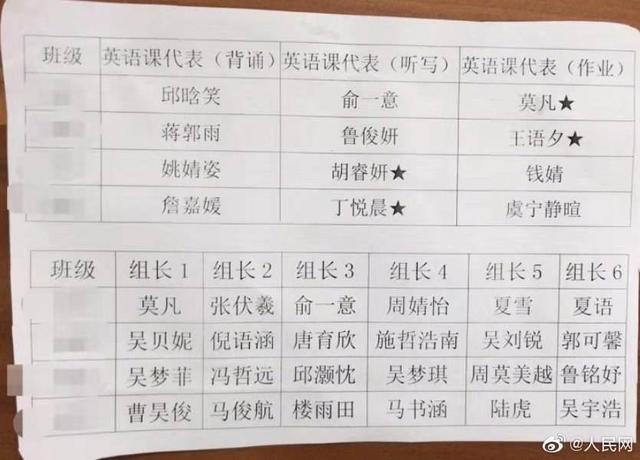 班级 英语课代表（背诵） 英语课代表（听写） 英语课代表（作业）
邱晗笑 俞一意 莫凡★
蒋郭雨 鲁俊妍 王语夕★
姚婧姿 胡睿妍★ 钱婧
詹嘉媛 丁悦晨★ 虞宁静暄
班级 组长1 组长2 组长3 组长4 组长5 组长6
莫凡 张伏羲 俞一意 周婧怡 夏雪 夏语
吴贝妮 倪语涵 唐育欣 施哲浩南 吴刘锐 郭可馨
吴梦菲 冯哲远 邱灏忱 吴梦琪 周莫美越 鲁铭妤
曹昊俊 马俊航 楼雨田 马书涵 陆虎 吴宇浩
@人民网